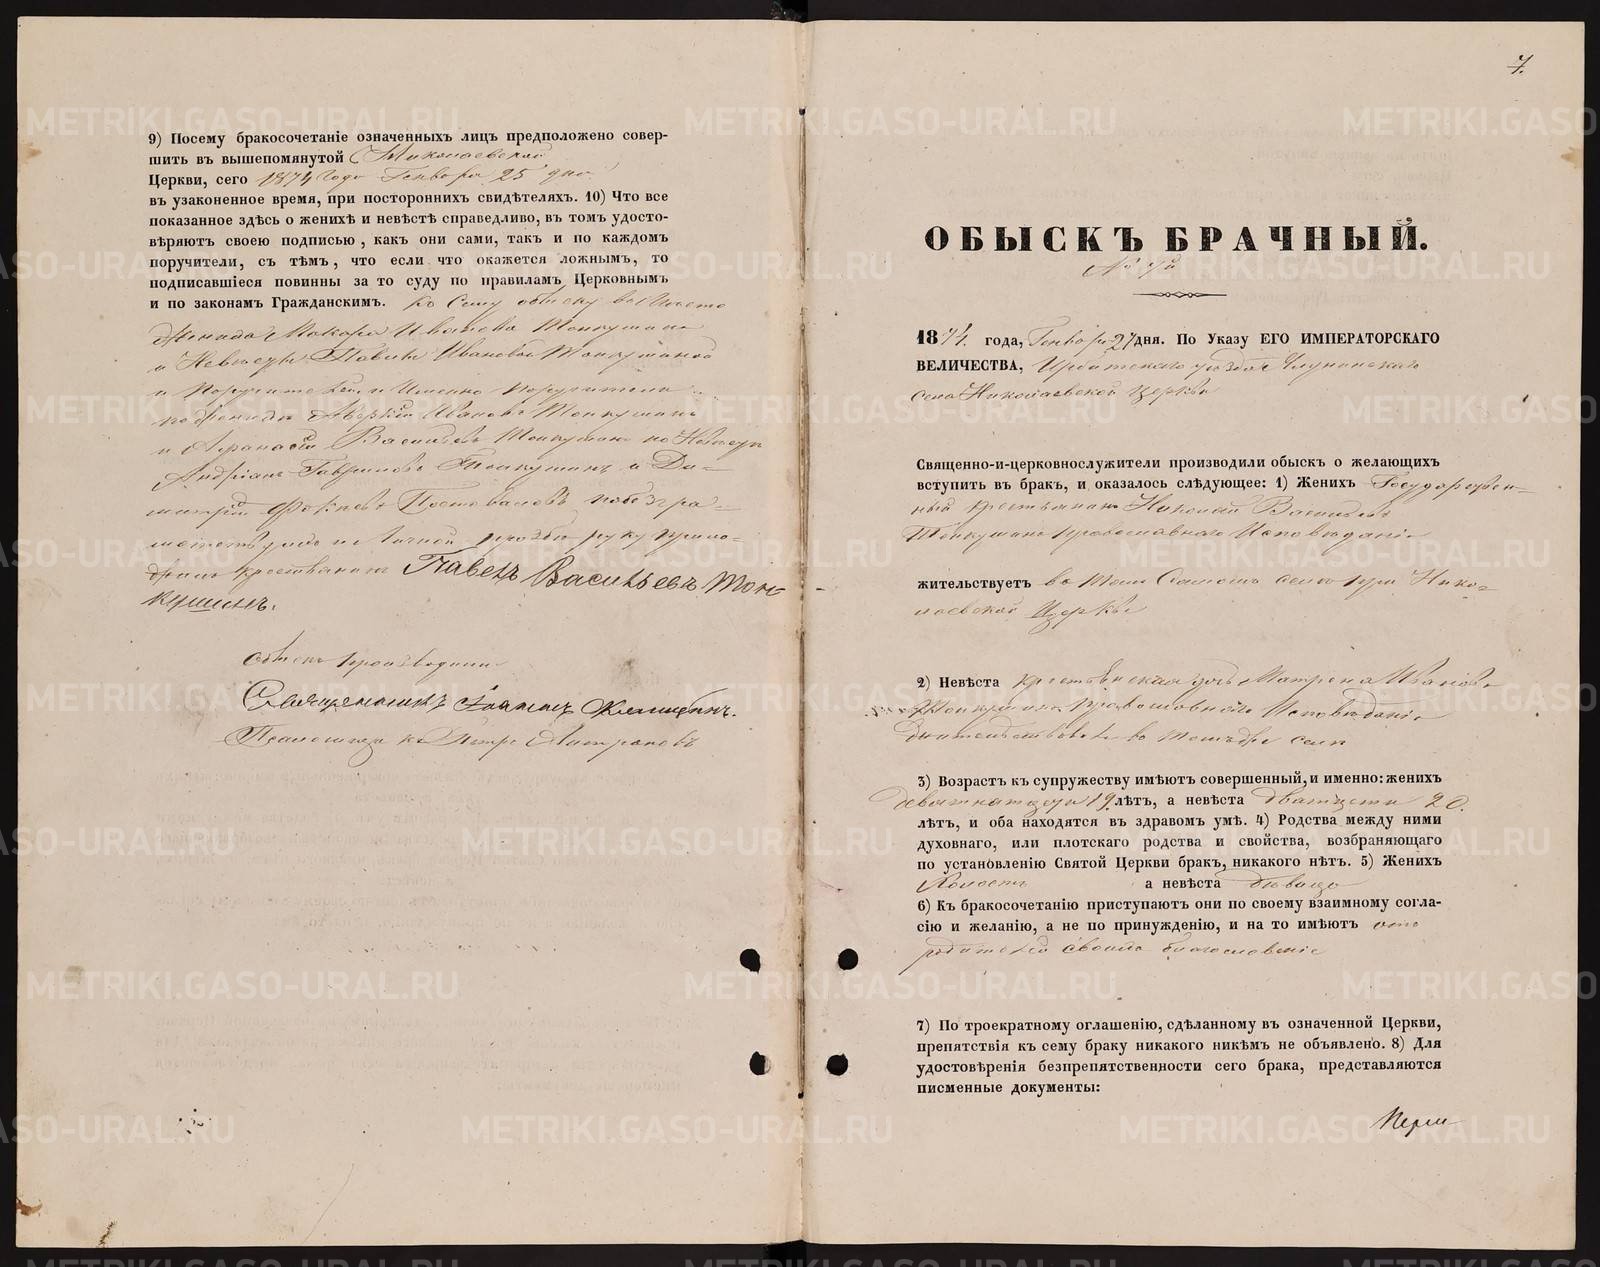 9) Посему бракосочетаніе означенныхъ лицъ предположено совер-
шить въ вышепомянутой Николаевской
Церкви, сего 1874 года Генваря 25 дня
въ узаконенное время, при постороннихъ свидѣтеляхъ. 10) Что все
показанное здѣсь о женихѣ и невѣстѣ справедливо, въ томъ удосто-
вѣряютъ своею подписью, какъ они сами, такъ и по каждомъ
поручители, съ тѣмъ, что если что окажется ложнымъ, то
подписавшіеся повинны за то суду по правиламъ Церковнымъ
и по законамъ Гражданскимъ. Къ сему обыску вместо
Жениха Макара Иванова Тонкушина
и Невесты Ивановой Тонкушиной
и поручителей, и именно поручители
по женихе Аверкій Ивановъ Тонкушинъ
и Афанасій Васильевъ Тонкушинъ по Невесте
Андріанъ Гавриловъ Тонкушинъ и Ди-
митрій Постоваловъ по безгра-
мотству ихъ и личной прозбе руку прило-
жилъ крестьянинъ Павелъ Васильевъ Тон-
кушинъ.
Обыскъ производили
Священникъ Іоаннъ
Псаломщикъ Петръ
7.
ОБЫСКЪ БРАЧНЫЙ.
№ 7й
1874. года, Генваря 27 дня. По Указу ЕГО ИМПЕРАТОРСКАГО
ВЕЛИЧЕСТВА, Ирбитскаго уезда
села Николаевской церкви
Священно-и-церковнослужители производили обыскъ о желающихъ
вступить въ бракъ, и оказалось слѣдующее: 1) Женихъ Государствен-
ный крестьянинъ Николай Васильевъ
Тонкушинъ православнаго Исповеданія
жительствуетъ въ томъ самомъ селе при Нико-
лаевской Церкви
2) Невѣста крестьянская дочь Матрена Иванова
Тонкушина православнаго Исповеданія
жительствовала въ томъ же селе
3) Возрастъ къ супружеству имѣютъ совершенный, и именно: женихъ
девятнатцети 19. лѣтъ, а невѣста дватцети 20.
лѣтъ, и оба находятся въ здравомъ умѣ. 4) Родства между ними
духовнаго, или плотскаго родства и свойства, возбраняющаго
по установленію Святой Церкви бракъ, никакого нѣтъ. 5) Женихъ
Холостъ а невѣста девица
6) Къ бракосочетанію приступаютъ они по своему взаимному согла-
сію и желанію, а не по принужденію, и на то имѣютъ отъ
родителей своихъ благословеніе
7) По троекратному оглашенію, сдѣланному въ означенной Церкви,
препятствія къ сему браку никакого никѣмъ не объявлено. 8) Для
удостовѣренія безпрепятственности сего брака, представляются
писменные документы:
METRIKI.GASO-URAL.RU